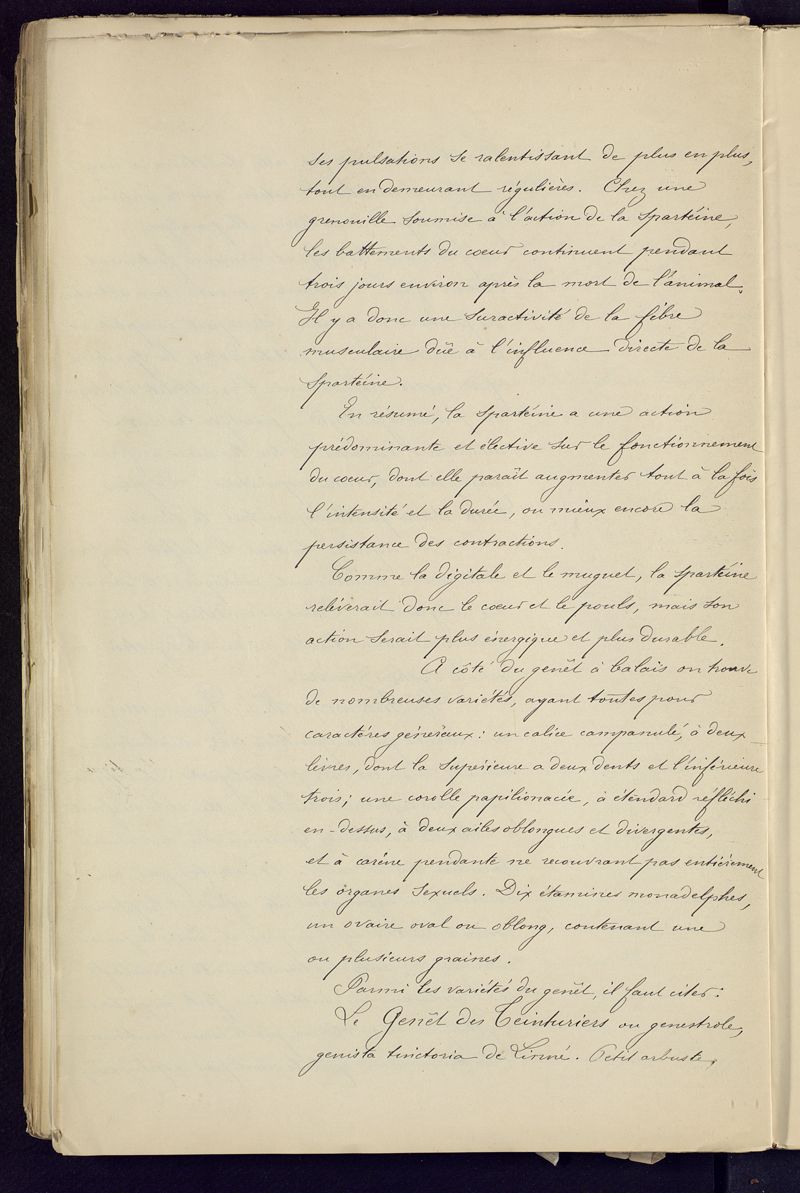 ses pulsations se ralentissant de plus en plus,
tout en demeurant régulières. Chez une
grenouille soumise à l'action de la Spartéine,
les battements du cœur continuent pendant
trois jours environ après la mort de l'animal.
Il y a donc une suractivité de la fibre
musculaire dûe à l'influence directe de la
Spartéine.
En résumé, la Spartéine a une action
prédominante et élective sur le fonctionnement
du cœur, dont elle paraît augmenter tout à la fois
l'intensité et la durée, ou mieux encore la
persistance des contractions.
Comme la digitale et le muguet, la Spartéine
relèverait donc le cœur et le pouls, mais son
action serait plus énergique et plus durable.
A côté du genêt à balais on trouve
de nombreuses variétés, ayant toutes pour
caractères généraux : un calice campanulé, à deux
lèvres, dont la supérieure a deux dents et l'inférieure
trois ; une corolle papilionacée, à étendard réfléchi
en-dessus, à deux ailes oblongues et divergentes,
et à carène pendante ne recouvrant pas entièrement
les organes sexuels. Dix étamines monadelphes,
un ovaire oval ou oblong, contenant une
ou plusieurs graines.
Parmi les variétés du genêt, il faut citer :
Le Genêt des Teinturiers ou genestrole,
genista tinctoria de Linné. Petit arbuste,